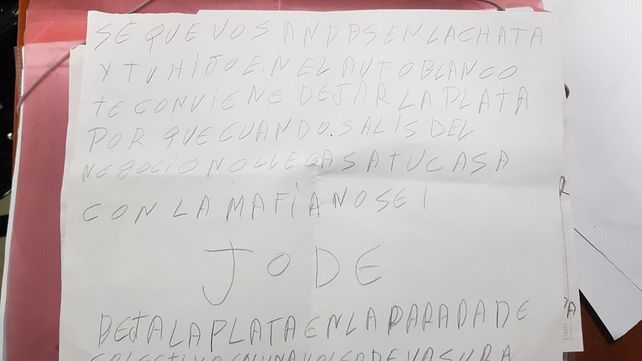 SE QUE VOS ANDAS EN LA CHATA
Y TU HIJO EN EL AUTO BLANCO
TE CONVIENE DEJAR LA PLATA
POR QUE CUANDO SALIS DEL
NEGOCIO NO LLEGAS A TU CASA
CON LA MAFIA NO SE
JODE
DEJA LA PLATA EN LA PARADA DE
COLECTIVO EN UNA BOLSA DE VASURA